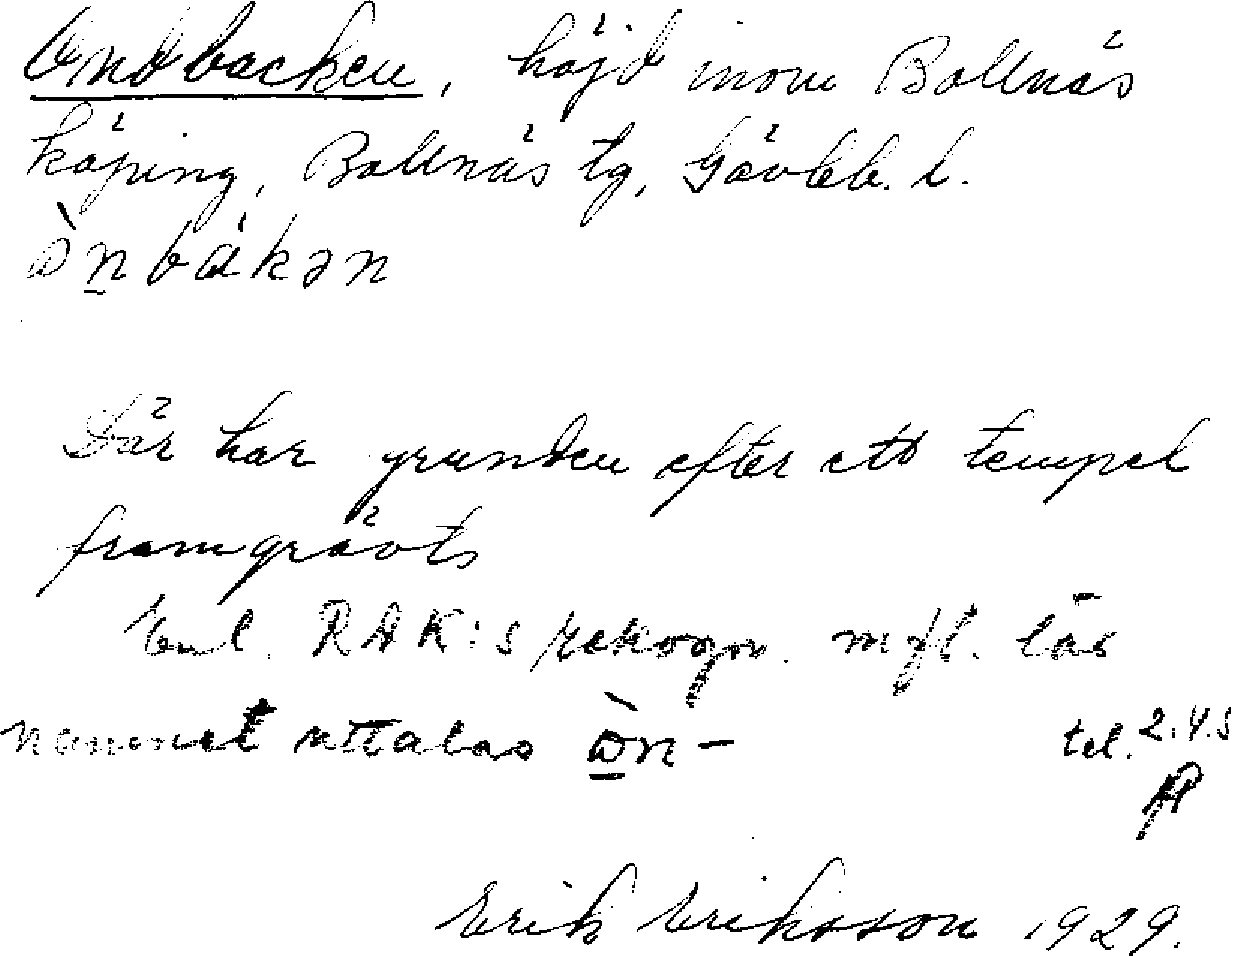 Ondbacken, höjd inom Bollnäs
köping, Bollnäs tg, Gävleb. l.
ὼn̲bákən
Där har grunden efter ett tempel
framgrävts
Enl. RAK:s rekogn. m fl. lär
namnet uttalas ὼ̲n-
tel. 2.4.5
Erik Eriksson 1929.